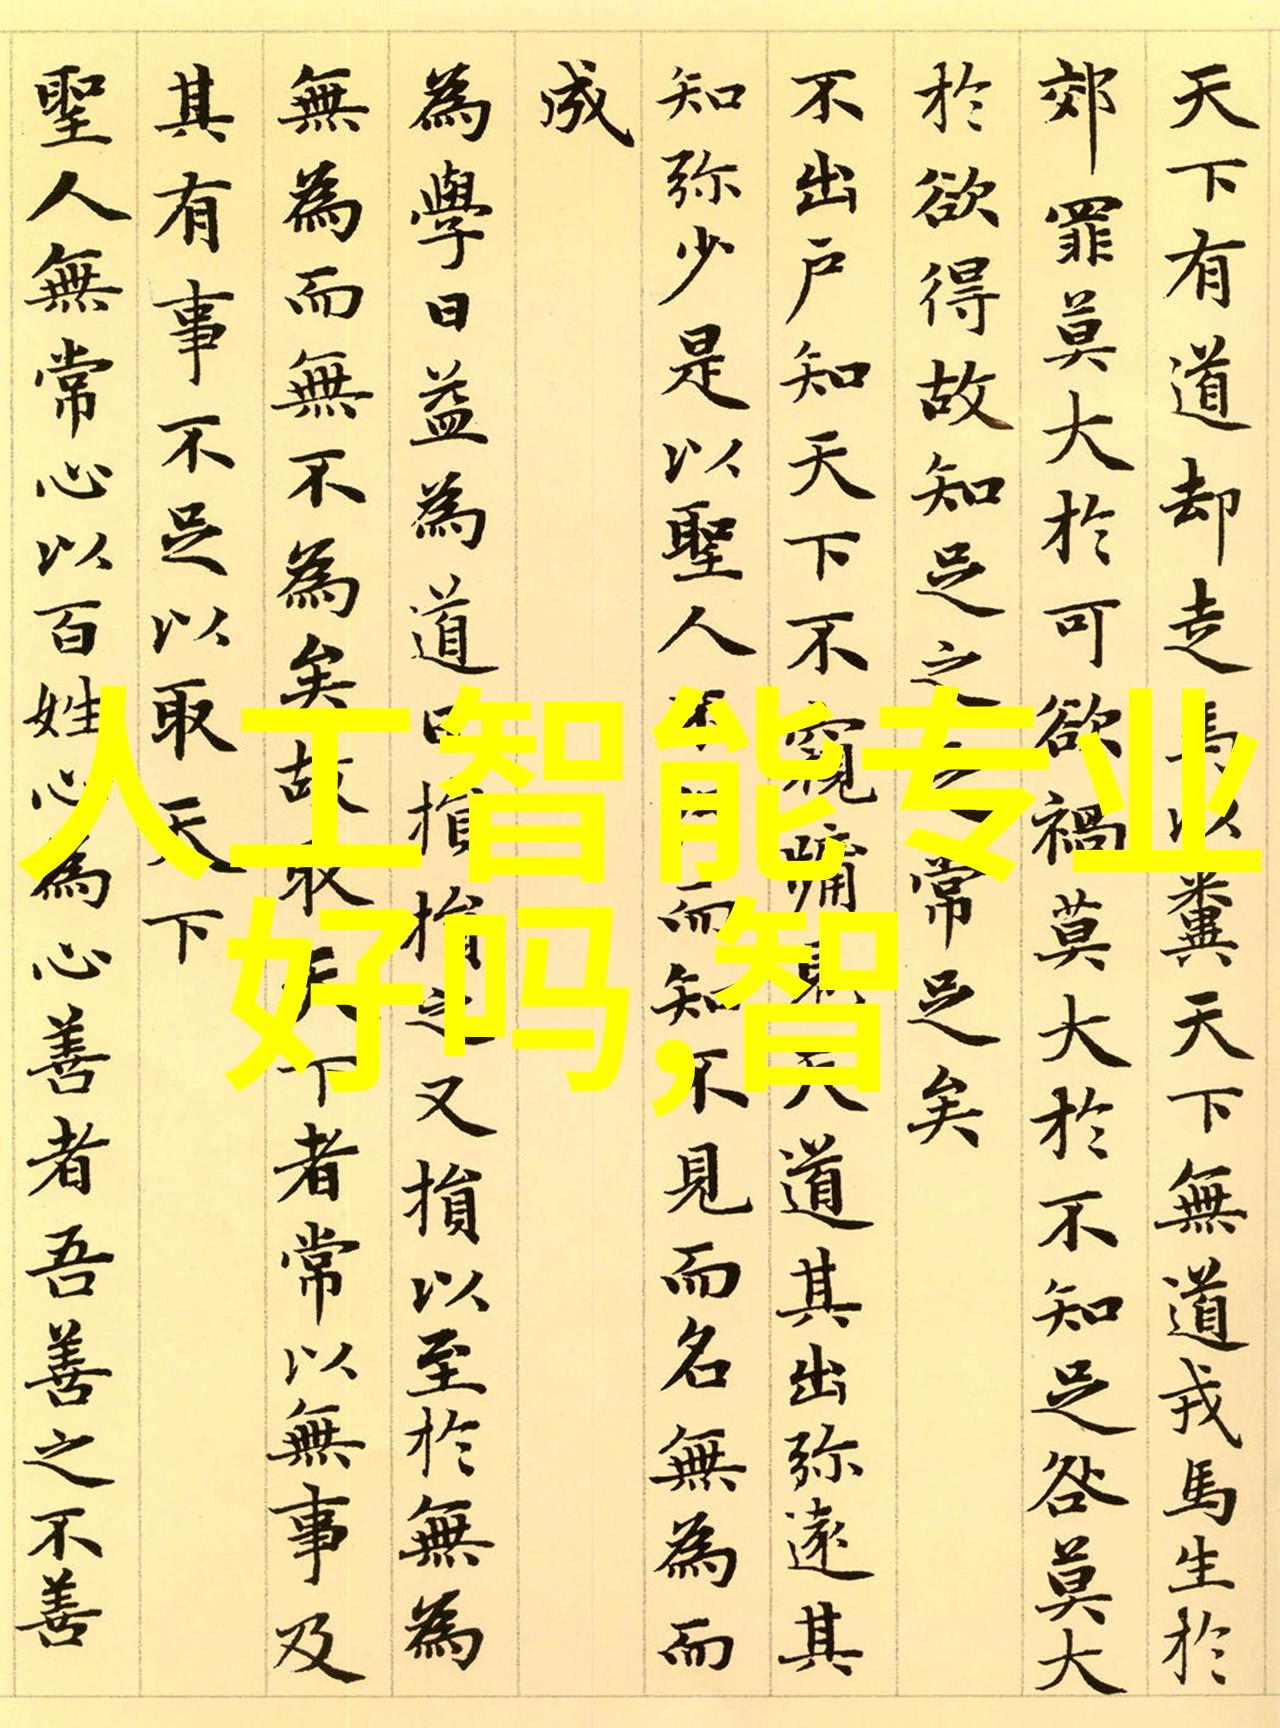 天下有道却走馬以糞天下無道戎馬生於
郊罪莫大於可欲禍莫大於不知足咎莫大
於欲得故知足之常足矣
不出戶知天下不窺牖見天道其出弥遠其
知弥少是以聖人不而知不見而名無為而
成
為學日益為道日損損之又損以至於無為
無為而無不為矣故取天下者常以無事及
其有事不足以取天下
聖人無常心以百姓心為心善者吾善之不善
人工智能专业
好吗,智